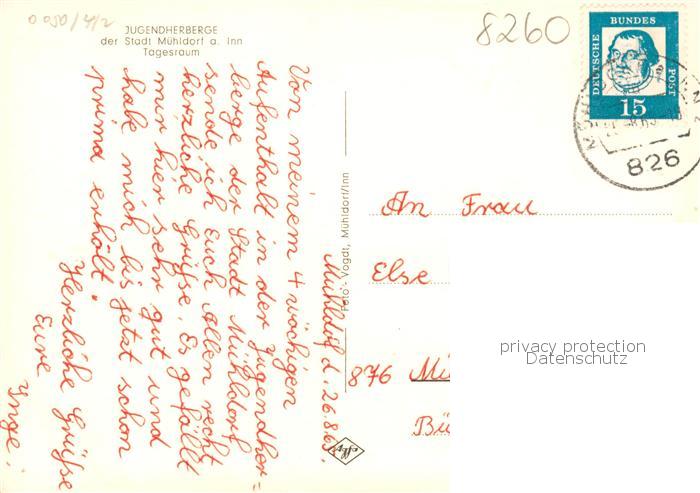 0050/4/2
JUGENDHERBERGE
der Stadt Mühldorf a. Inn
Tagesraum
8260
DEUTSCHE
BUNDES
POST
15
826
Mühldorf d. 26.8.63.
Von meinem 4 wöchigen
Aufenthalt in der Jugendher-
berge der Stadt Mühldorf
sende ich Euch Allen recht
herzliche Grüße. Es gefällt
mir hier sehr gut und
habe mich bis jetzt schon
prima erholt.
Herzliche Grüße
Eure
Inge.
Foto - Vogdt, Mühldorf/Inn
An Frau
Else
876 Mü
Bü
privacy protection
Datenschutz